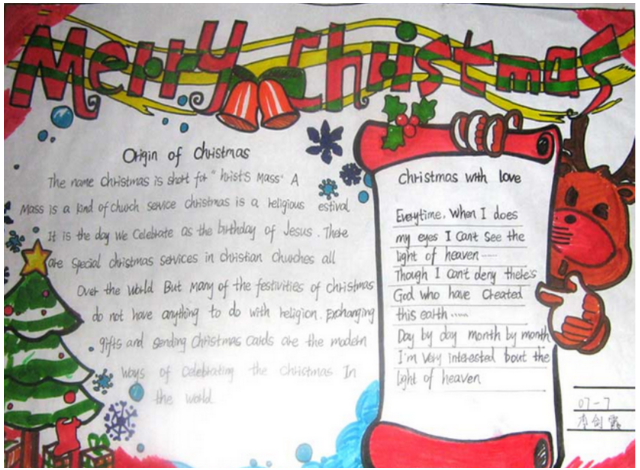 Merry Christmas
Origin of Christmas
The name Christmas is short for "hrists Mass" A
Mass is a kind of church service christmas is a religious estival
It is the day we celebrate as the birthday of Jesus. There
are special christmas services in christian churches all
Over the World But Many of the festivities of christmas
do not have anything to do with religion. Exchanging
gifts and sending Christmas Cards are the modern
ways of Celebrating the Christmas In
the world
Christmas with love
Everytime, When I does
my eyes I can't See the
light of heaven ......
Though I can't deny there's
God who have created
this earth ......
Day by day month by month
I'm Very interested bout the
light of heaven
07-7
李剑